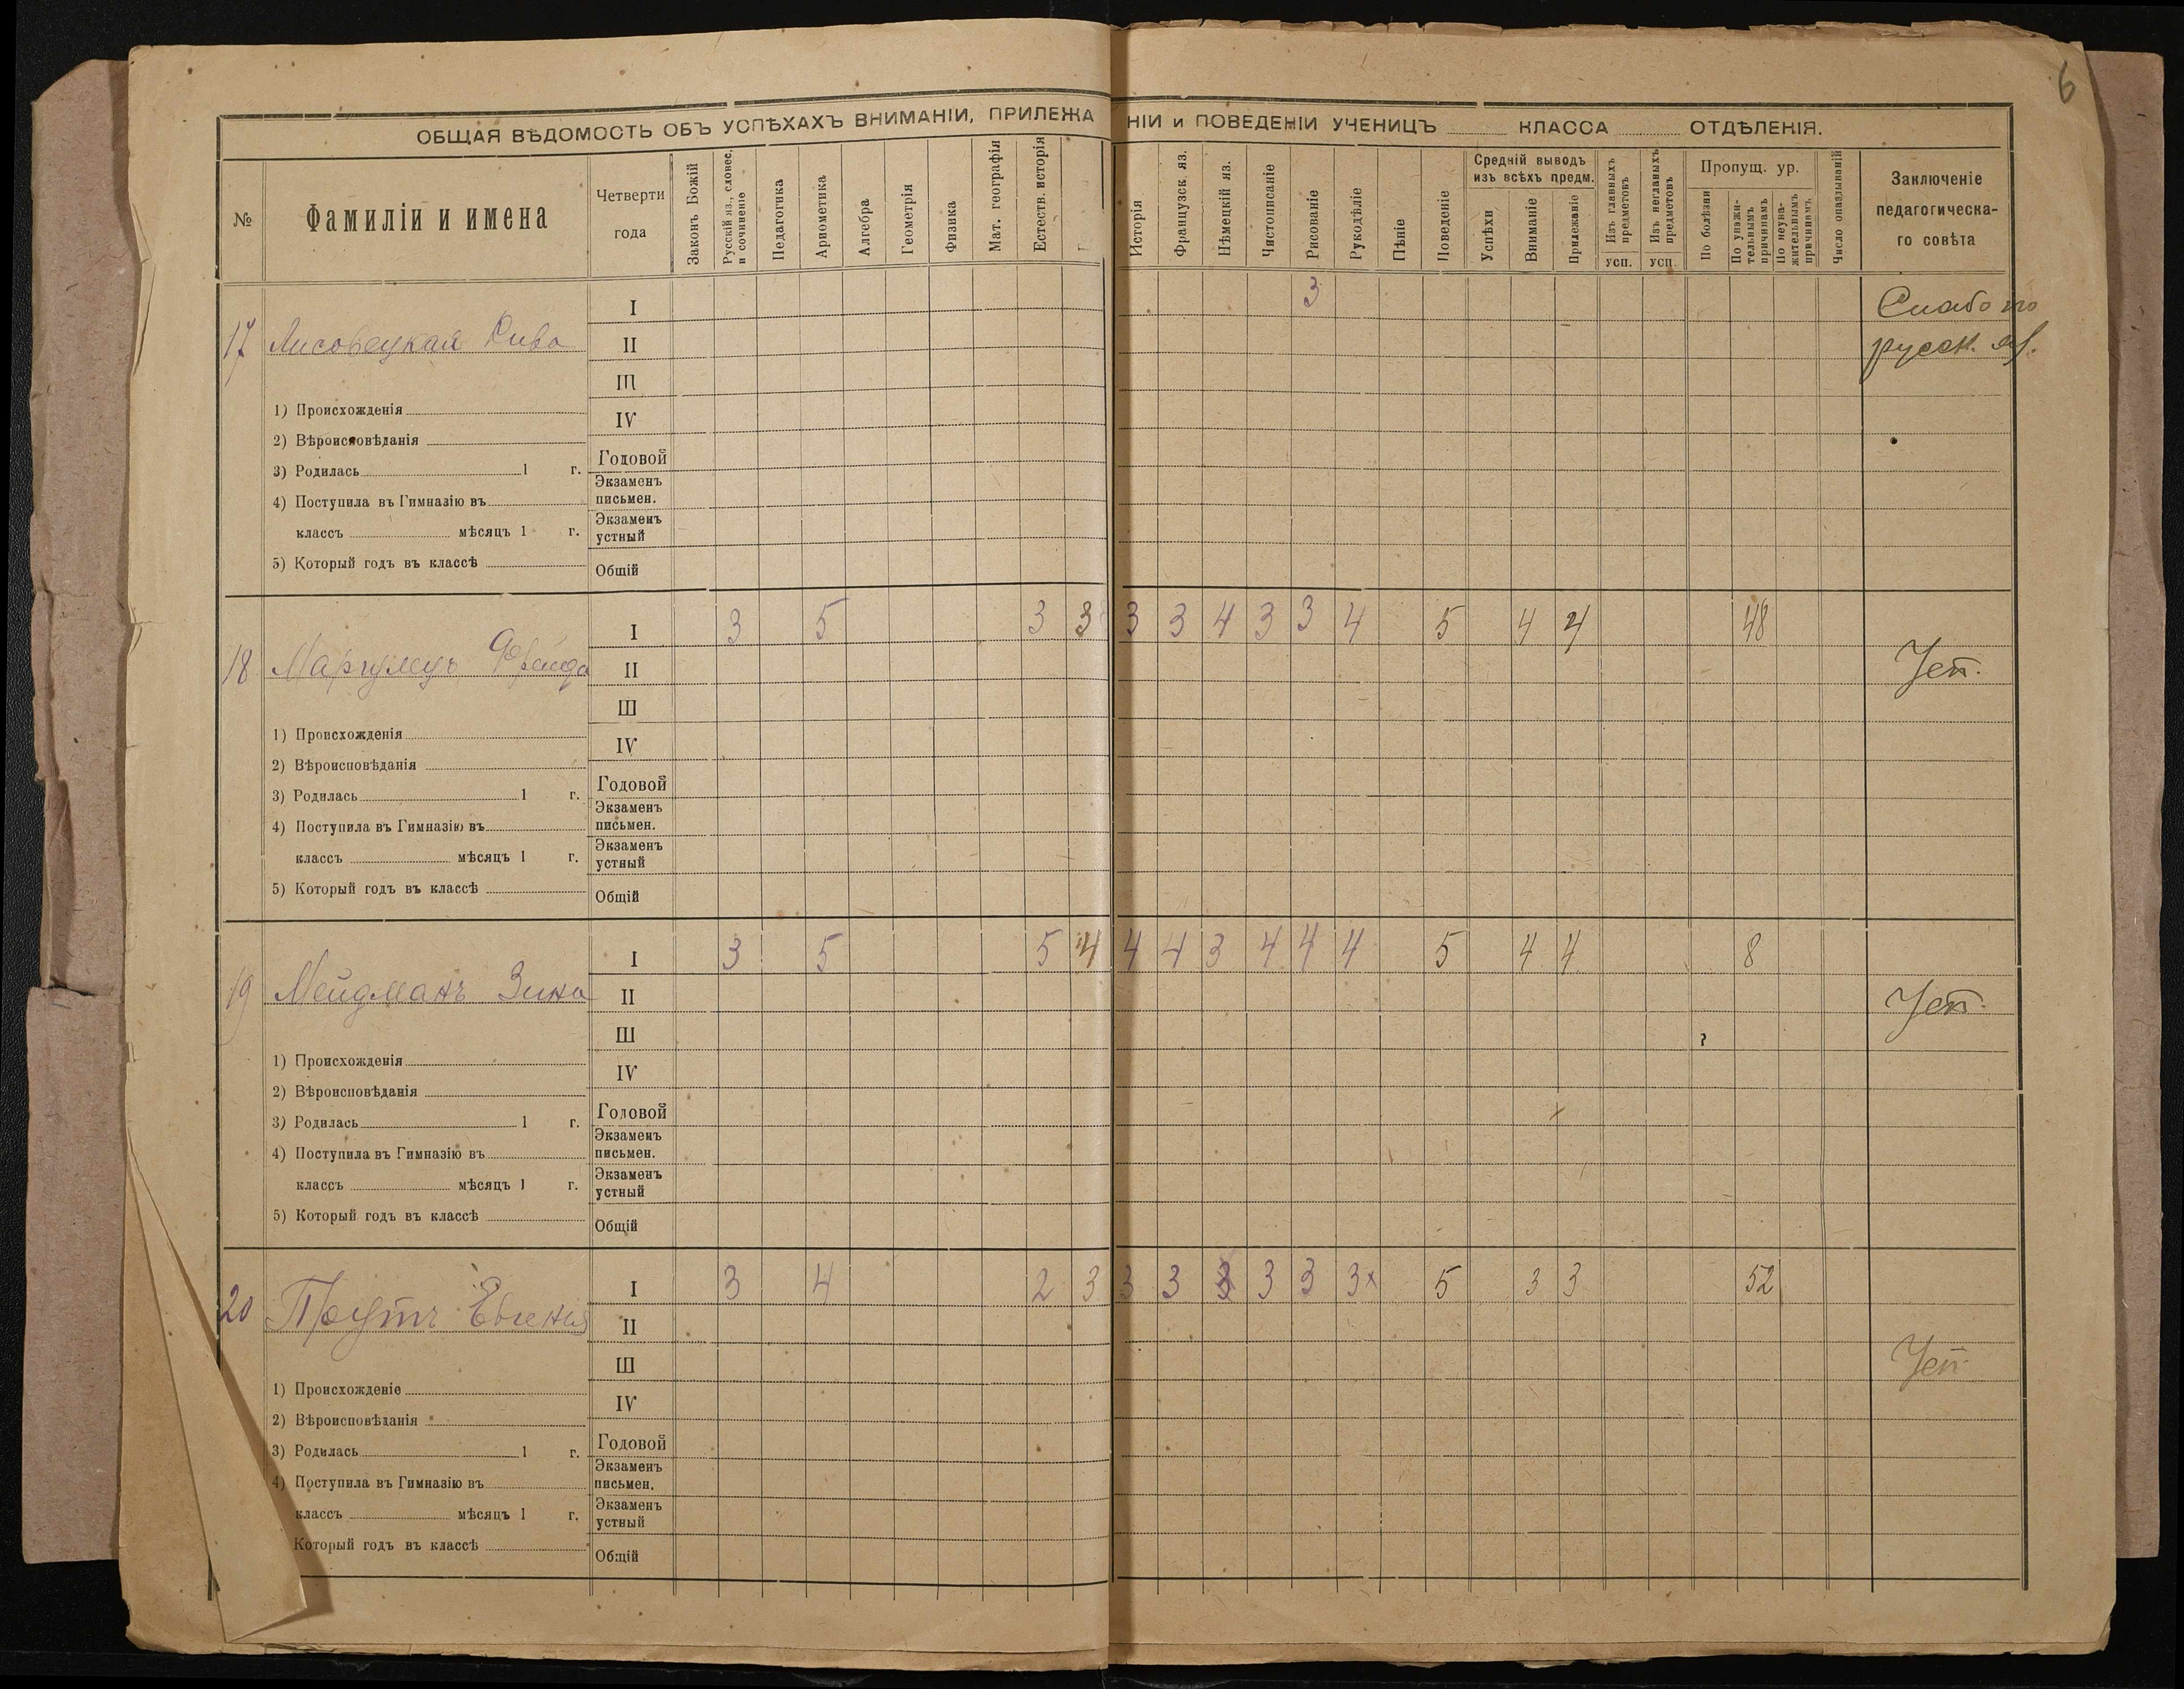 6
ОБЩАЯ ВѢДОМОСТЬ ОБЪ УСПѢХАХЪ ВНИМАНІИ, ПРИЛЕЖАНІИ и ПОВЕДЕНІИ УЧЕНИЦЪ КЛАССА ОТДѢЛЕНІЯ.
№
Фамиліи и имена
Четверти года
Законъ Божій
Русскій яз., словес. и сочиненіе
Педагогика
Ариѳметика
Алгебра
Геометрія
Физика
Мат. географія
Естеств. исторія
Исторія
Французск. яз.
Нѣмецкій яз.
Чистописаніе
Рисованіе
Рукодѣліе
Пѣніе
Поведеніе
Средній выводъ изъ всѣхъ предм.
Успѣхи
Вниманіе
Прилежаніе
Изъ главныхъ предметовъ
усп.
Изъ неглавныхъ предметовъ
усп.
Пропущ. ур.
По болѣзни
По уважительнымъ причинамъ
По неуважительнымъ причинамъ
Число опаздываній
Заключеніе педагогическаго совѣта
17 Лисовецкая Рива
I 3 Слабо по
II русск. яз.
III
1) Происхожденія
IV
2) Вѣроисповѣданія
Годовой
3) Родилась 1 г.
Экзаменъ письмен.
4) Поступила въ Гимназію въ
Экзаменъ устный
классъ мѣсяцъ 1 г.
5) Который годъ въ классѣ
Общій
18 Маргулецъ Фрейда
I 3 5 3 3 3 3 4 3 3 4 5 4 4 48
II Усп.
III
1) Происхожденія
IV
2) Вѣроисповѣданія
Годовой
3) Родилась 1 г.
Экзаменъ письмен.
4) Поступила въ Гимназію въ
Экзаменъ устный
классъ мѣсяцъ 1 г.
5) Который годъ въ классѣ
Общій
19 Мейдманъ Зина
I 3 5 5 4 4 4 3 4 4 4 5 4 4 8
II Усп.
III
1) Происхожденія
IV
2) Вѣроисповѣданія
Годовой
3) Родилась 1 г.
Экзаменъ письмен.
4) Поступила въ Гимназію въ
Экзаменъ устный
классъ мѣсяцъ 1 г.
5) Который годъ въ классѣ
Общій
20 Прутъ Евгенія
I 3 4 2 3 3 3 3 3 3 3x 5 3 3 52
II
III Усп.
1) Происхожденіе
IV
2) Вѣроисповѣданія
Годовой
3) Родилась 1 г.
Экзаменъ письмен.
4) Поступила въ Гимназію въ
Экзаменъ устный
классъ мѣсяцъ 1 г.
Который годъ въ классѣ
Общій